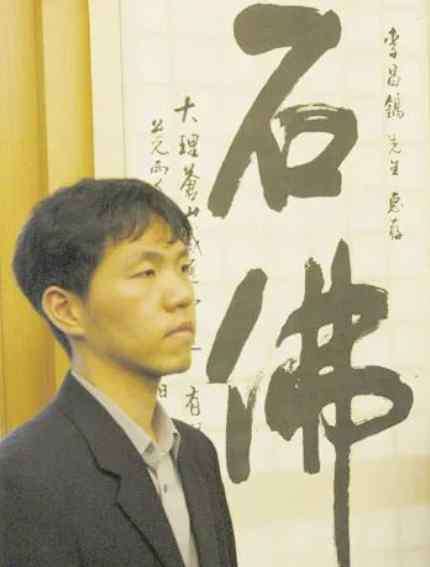 李昌鎬 先生 惠存
石佛
大理蒼山
公元兩
日